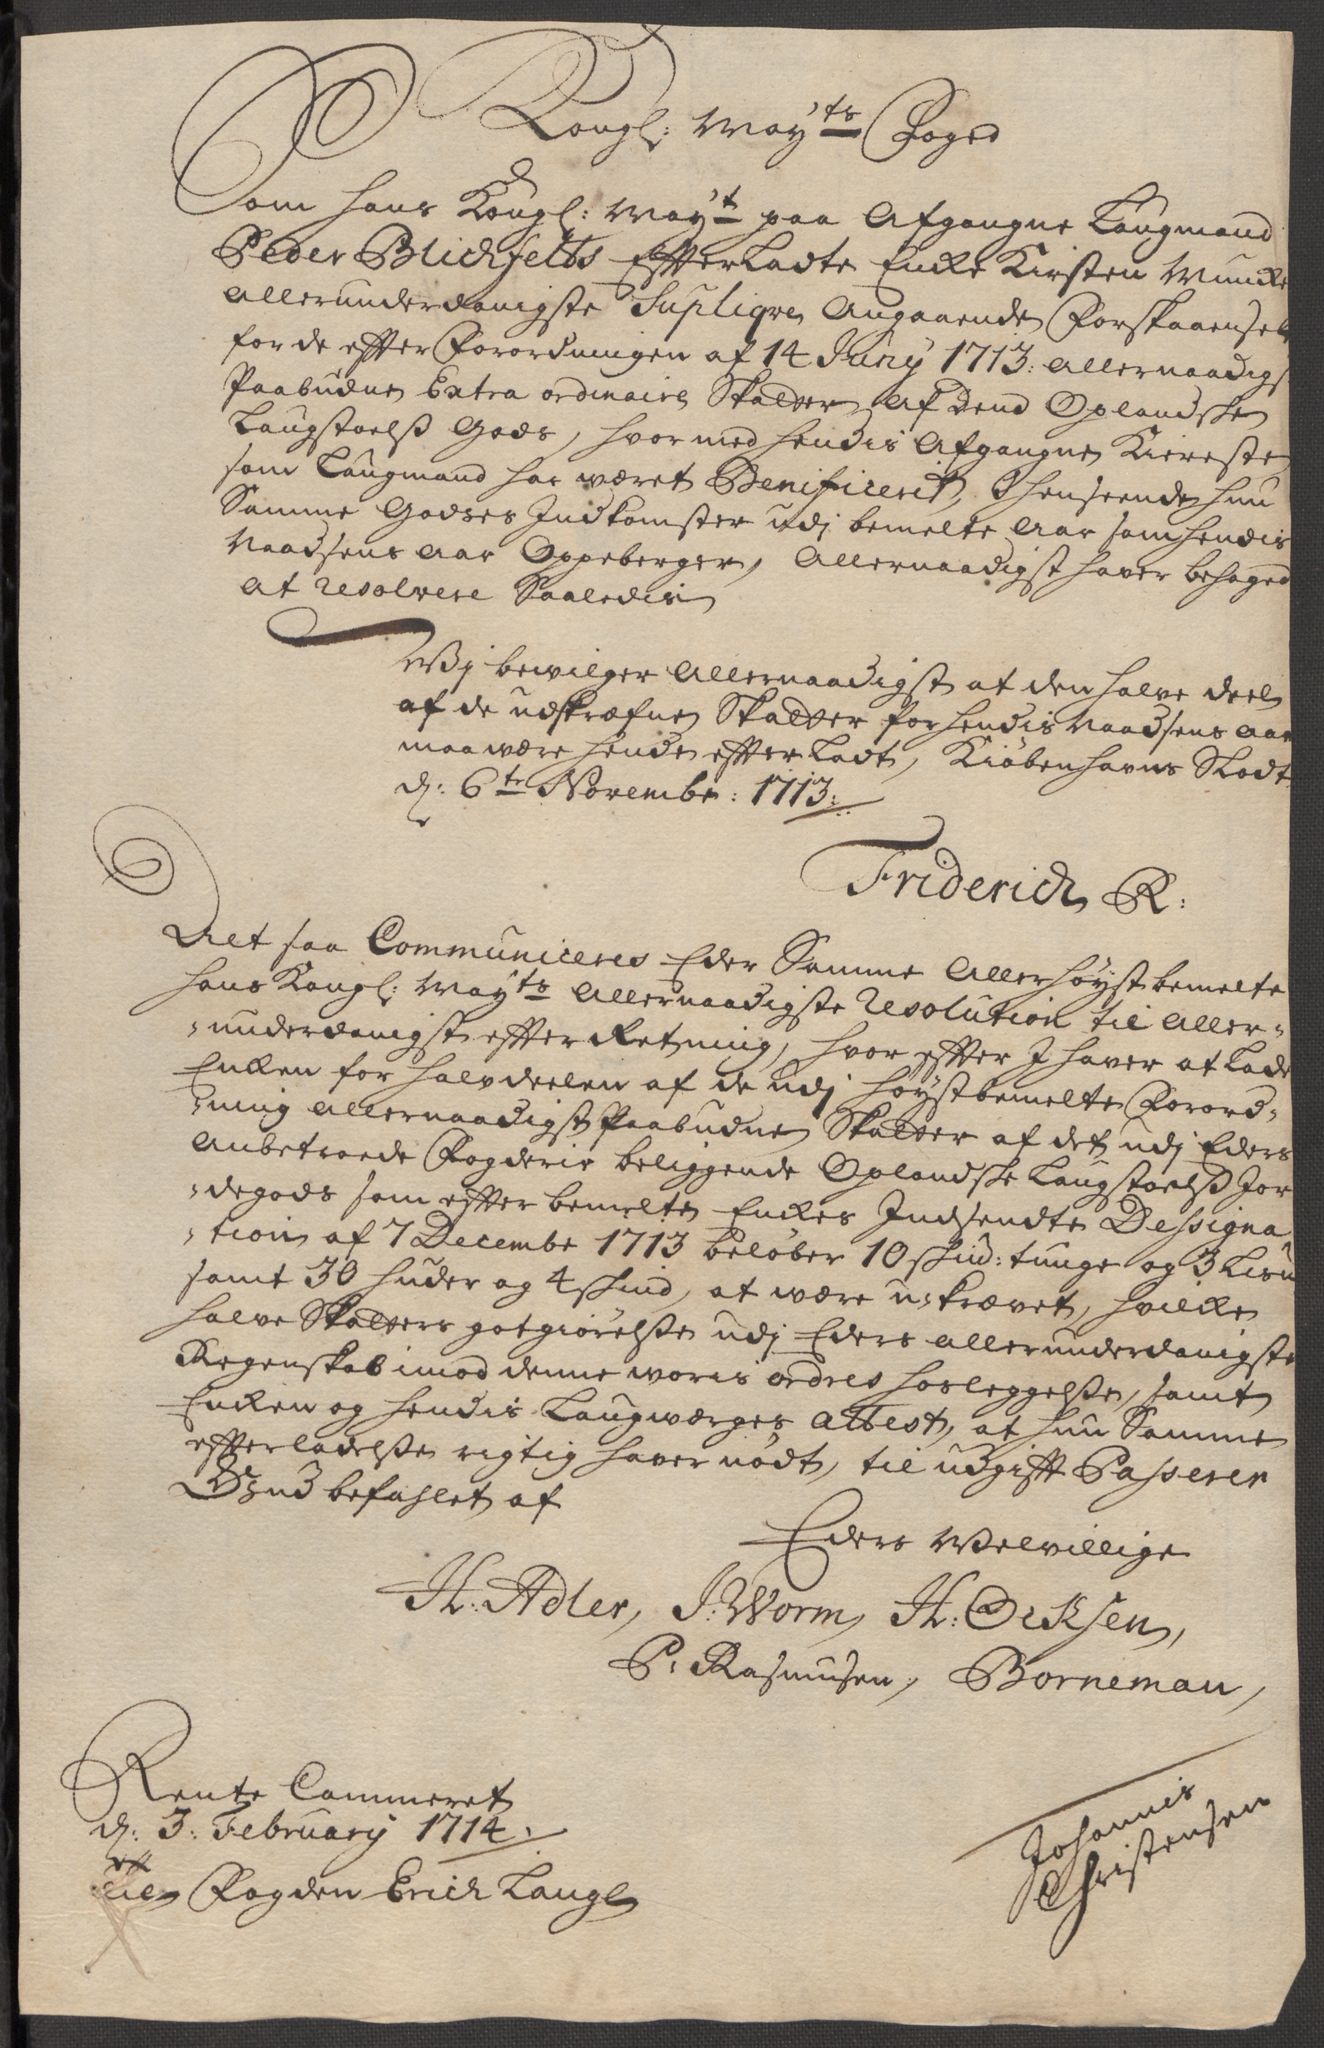 Kongl: Mayts Foged
Som hans Kongl: Mayt paa Afgangne Laugmand
Peder Blichfelds Effterladte Encke Kirsten Muncke
Allerunderdanigste Supliqve Angaaende Forskaanselse
for de effter Forordningen af 14 Juny 1713: Allernaadigst
Paabudne Extra ordinaire Skatter af dend Oplandske
Laugstoelss Gods, hvormed hendis Afgangne Kiereste
som Laugmand har wæret Benificerit, I henseende hun
Samme Godses Indkomster udj bemelte Aar som hendis
Naadsens Aar Oppeberger, Allernaadigst haver behaged
At resolvere Saaledis
Wij bewilger Allernaadigst at den halve deel
af de udskrefne Skatter for hendis Naadsens Aar
maa være hende effterladt, Kiöbenhavns Slodt
d: 6te Novembr: 1713:
Friderich R:
Det saa Communiceres Eder Samme Allerhöystbemelte
Hans Kongl: Mayts Allernaadigste Resolution til Aller-
-underdanigst effterRetning, hvor effter I haver at Lade
Encken for halvdeelen af de udj höystbemelte Forord-
-ning Allernaadigst Paabudne Skatter af det udj Eders
Anbetroede Fogderie beliggende Oplandske Laugstoelss Jor
-degods som effter bemelte Enckes Indsendte Dessigna
-tion af 7 Decembr 1713 beløber 10 skind: tunge og 3 Lisu
samt 30 huder og 4 skind, at være u-krævet, hvilcke
halve Skatters gotgiörelsse udj Eders allerunderdanigste
Regenskab imod denne woris ordres hosleggelsse, samt
Encken og hendis Laugwerges Attest, at hun Samme
effterladelsse rigtig haver nödt, til udgifft Passerer
Gud befahlet af
Eders Welvillige
H: Adler, J: Worm, H: Ocksen,
P: Rasmusen, Borneman,
Rente Cammeret
d: 3: February 1714.
Til Fogden Erich Laug
Johannis
Christensen